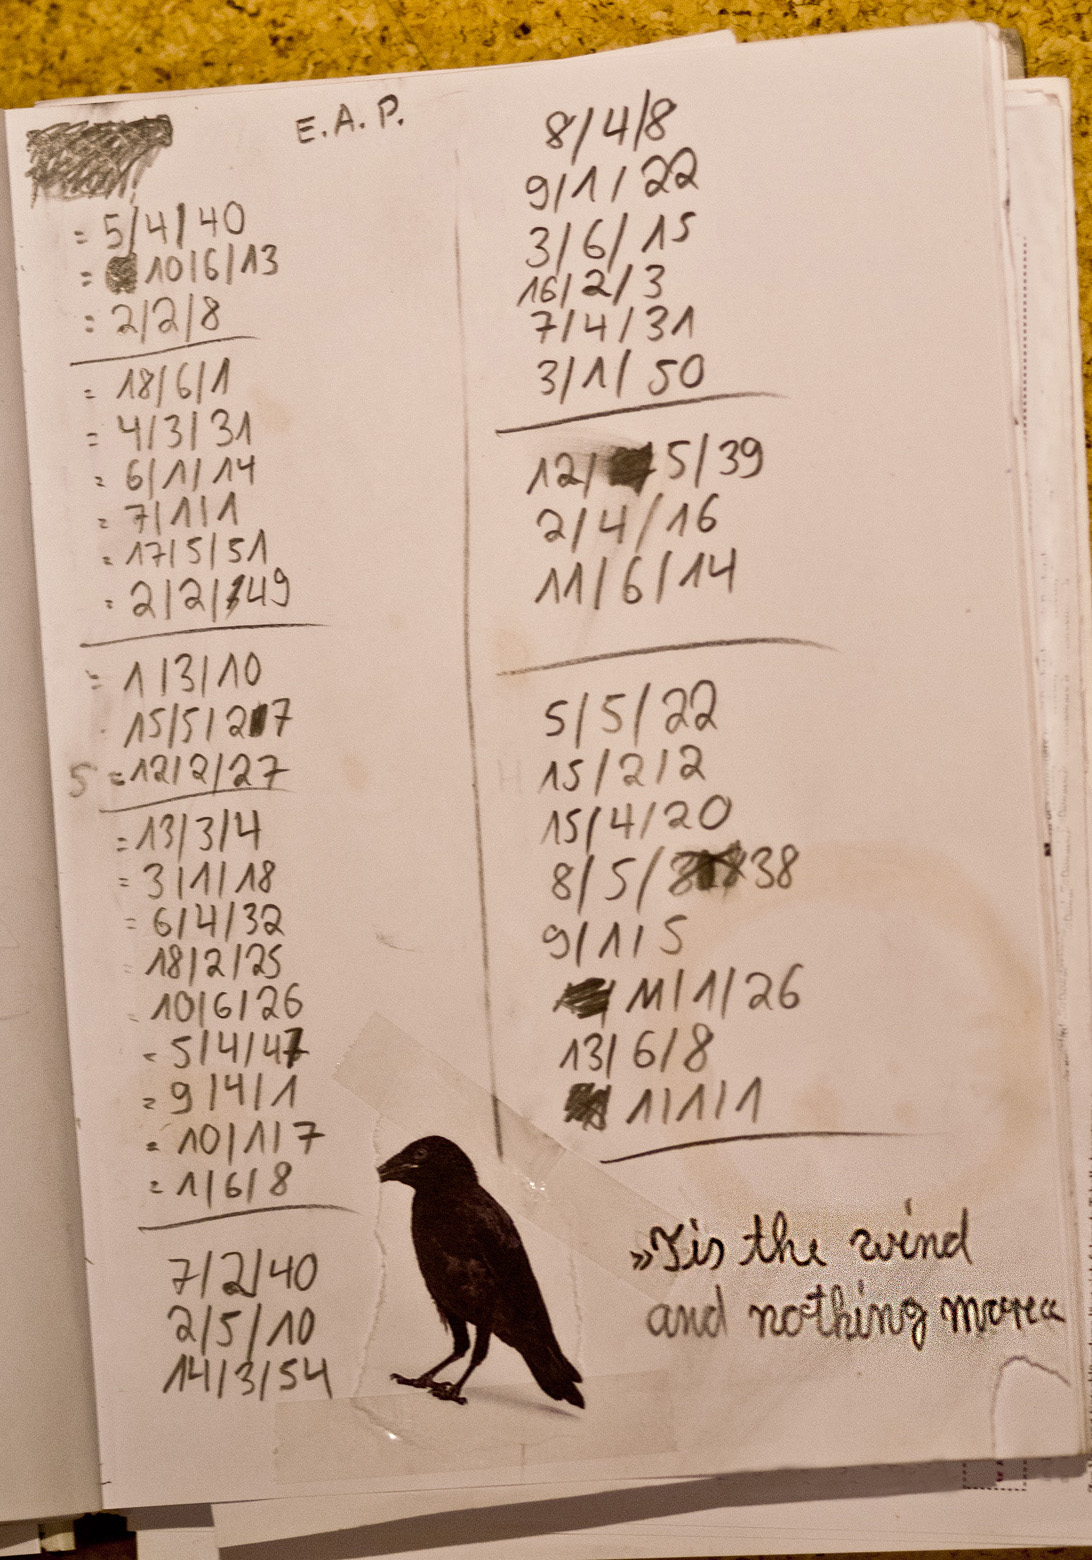 E.A.P.
= 5/4/40
= 10/6/13
= 2/2/8
= 18/6/1
= 4/3/31
= 6/1/14
= 7/1/1
= 17/5/51
= 2/2/49
= 1/3/10
15/5/27
5 = 12/2/27
= 13/3/4
= 3/1/18
= 6/4/32
18/2/25
10/6/26
= 5/4/47
= 9/4/1
= 10/1/7
= 1/6/8
7/2/40
2/5/10
14/3/54
8/4/8
9/1/22
3/6/15
16/2/3
7/4/31
3/1/50
12/5/39
2/4/16
11/6/14
5/5/22
15/2/2
15/4/20
8/5/38
9/1/5
11/1/26
13/6/8
1/1/1
»Tis the wind
and nothing more«